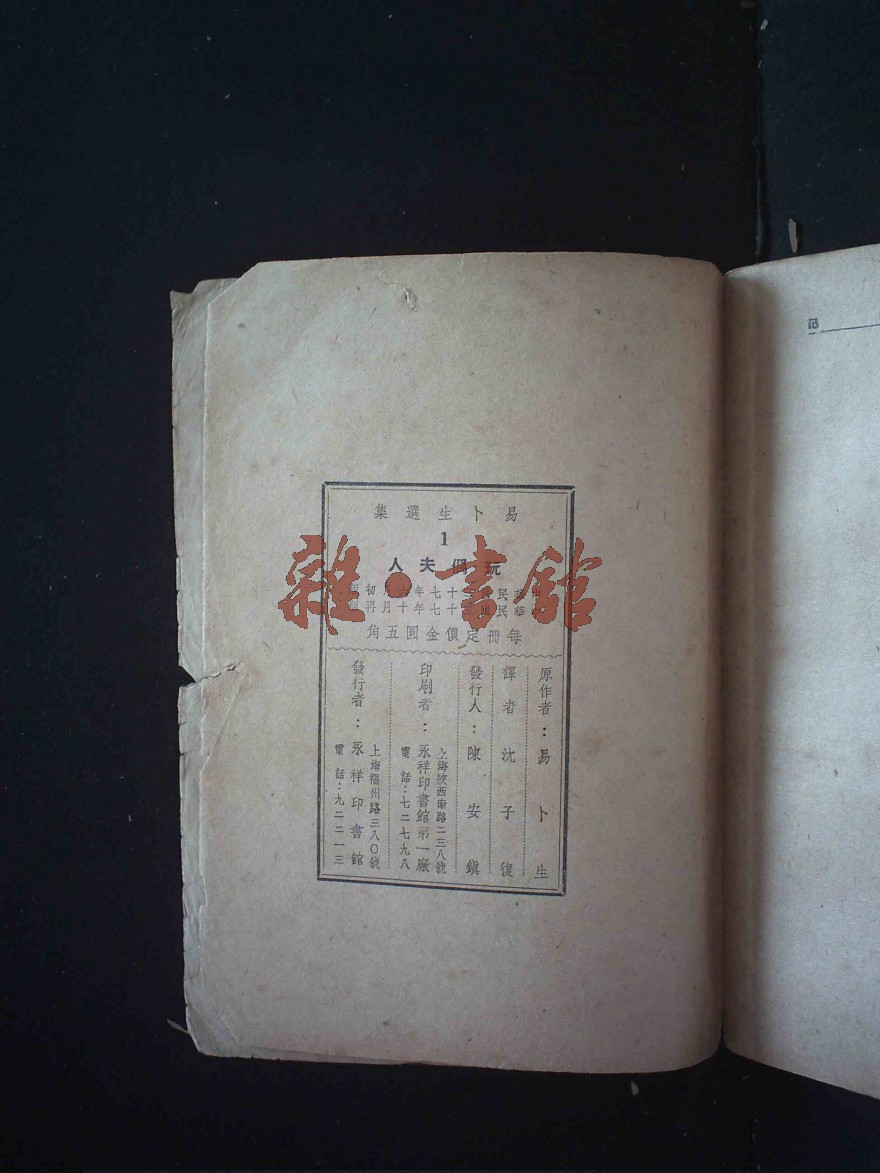 易卜生選集
1
玩偶夫人
中華民國三十七年六月初版
中華民國三十七年十月再版
每冊定價金圓五角
原作者：易卜生
譯者沈子復
發行人：陳安鎭
印刷者：永祥印書館第一廠
上海陝西南路二三八號
電話：七二七九八
發行者：永祥印書館
上海福州路三八〇號
電話：九二二一三
雜·書館